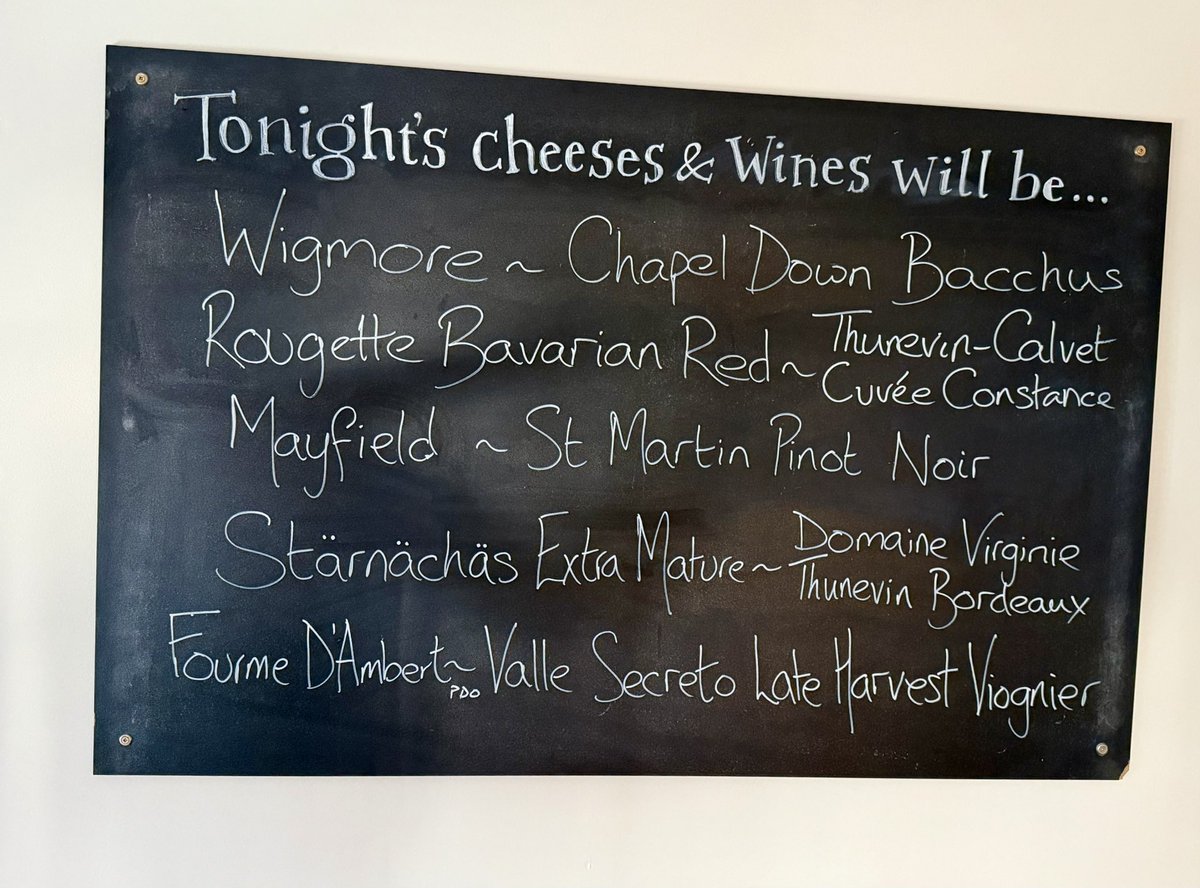 Tonight's cheeses & Wines will be...
Wigmore ~ Chapel Down Bacchus
Rougette Bavarian Red ~ Thunevin-Calvet
Cuvée Constance
Mayfield ~ St Martin Pinot Noir
Stärnächäs Extra Mature ~ Domaine Virginie
Thunevin Bordeaux
Fourme D'Ambert ~ Valle Secreto Late Harvest Viognier
PDO